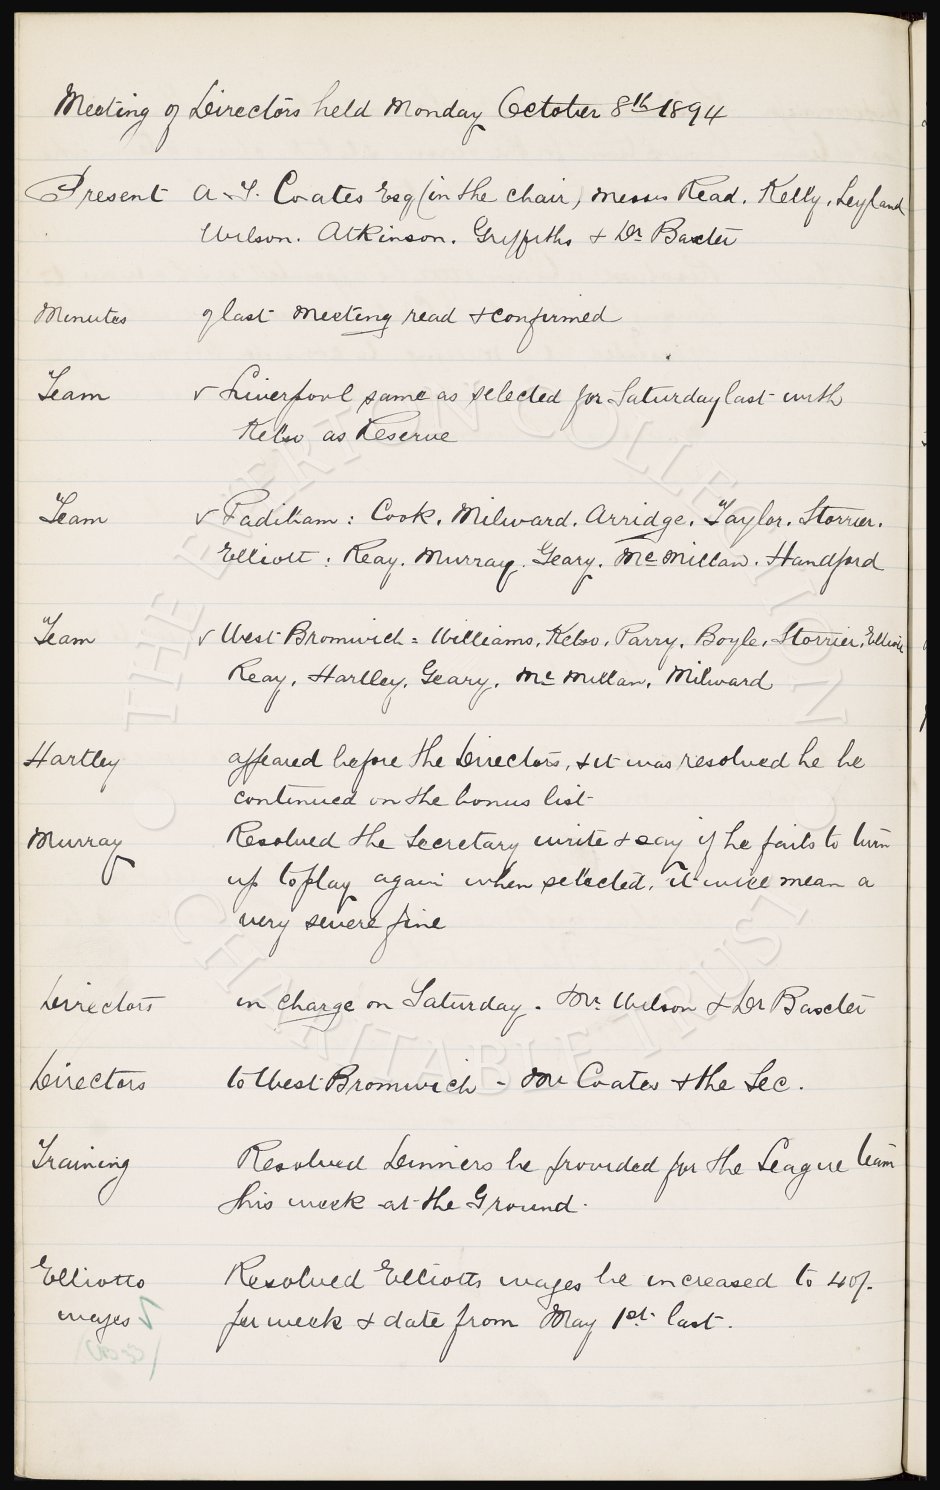 Meeting of Directors held Monday October 8th 1894
Present A. T. Coates Esq (in the chair) Messrs Read. Kelly. Leyland
Wilson. Atkinson. Griffiths & Dr Baxter
Minutes of last meeting read & confirmed
Team v Liverpool same as selected for Saturday last with
Kelso as Reserve
Team v Padiham: Cook. Milward. Arridge. Taylor. Storrier.
Elliott: Reay. Murray. Geary. McMillan. Handford
Team v West Bromwich = Williams, Kelso, Parry, Boyle, Storrier, Elliott
Reay, Hartley, Geary, Mc Millan, Milward
Hartley appeared before the Directors, & it was resolved he be
continued on the bonus list
Murray Resolved the Secretary write & say if he fails to turn
up to play again when selected, it will mean a
very severe fine
Directors in charge on Saturday - Mr. Wilson & Dr Baxter
Directors to West Bromwich - Mr Coates & the Sec.
Training Resolved Dinners be provided for the League team
this week at the Ground.
Elliotts Resolved Elliotts wages be increased to 40/-
wages per week & date from May 1st last.
THE EVERTON COLLECTION
CHARITABLE TRUST